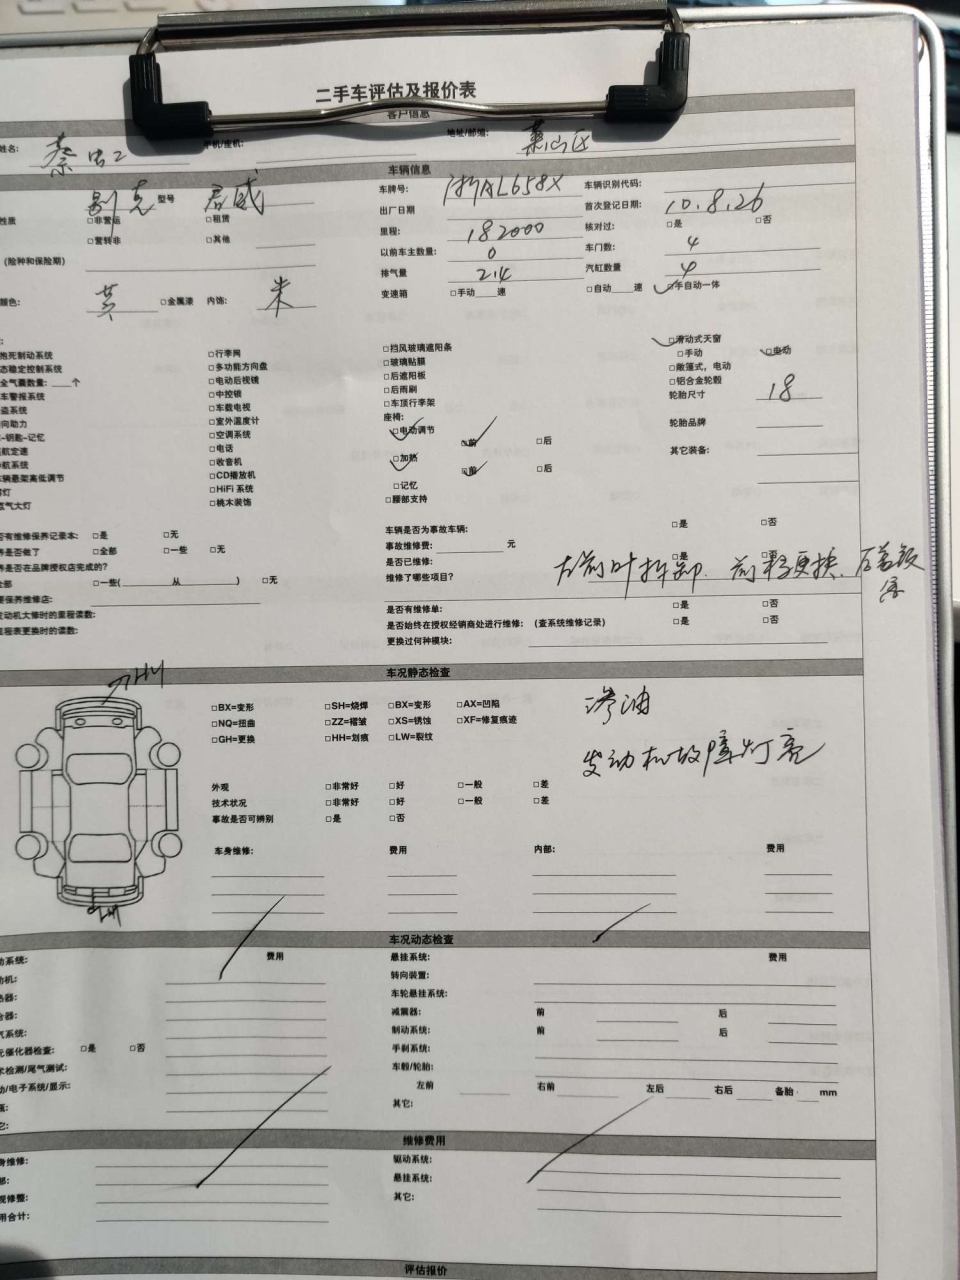 二手车评估及报价表
客户信息
姓名: 手机/座机: 地址/邮编: 萧山区
车辆信息
别克 型号 君威 车牌号: 浙AL658X 车辆识别代码:
性质 □非营运 □租赁 出厂日期 首次登记日期: 10.8.26
□营转非 □其他 里程: 182000 核对过: □是 □否
(险种和保险期) 以前车主数量: 0 车门数: 4
排气量 2.4 汽缸数量 4
颜色: 黄 □金属漆 内饰: 米 变速箱 □手动 速 □自动 速 □手自动一体
抱死制动系统 □行李网 □挡风玻璃遮阳条 □滑动式天窗
态稳定控制系统 □多功能方向盘 □玻璃贴膜 □手动 □电动
全气囊数量: 个 □电动后视镜 □后遮阳板 □敞篷式,电动
车警报系统 □中控锁 □后雨刷 □铝合金轮毂
盗系统 □车载电视 □车顶行李架 轮胎尺寸 18
向助力 □室外温度计 座椅:
-钥匙-记忆 □空调系统 □电动调节 □前 □后 轮胎品牌
航定速 □电话
航系统 □收音机 □加热 □前 □后 其它装备:
辆悬架高低调节 □CD播放机
灯 □HiFi 系统 □记忆
氙气大灯 □桃木装饰 □腰部支持
有维修保养记录本: □是 □无 车辆是否为事故车辆: □是 □否
养是否做了 □全部 □一些 □无 事故维修费: 元
养是否在品牌授权店完成的? 是否已维修: □是 □否
全部 □一些( 从 ) □无 维修了哪些项目? 左前叶拆卸. 前杠更换.
要保养维修店:
发动机大修时的里程读数: 是否有维修单: □是 □否
里程表更换时的读数: 是否始终在授权经销商处进行维修: (查系统维修记录) □是 □否
更换过何种模块:
车况静态检查
□BX=变形 □SH=烧焊 □BX=变形 □AX=凹陷 渗油
□NQ=扭曲 □ZZ=褶皱 □XS=锈蚀 □XF=修复痕迹
□GH=更换 □HH=划痕 □LW=裂纹 发动机故障灯亮
外观 □非常好 □好 □一般 □差
技术状况 □非常好 □好 □一般 □差
事故是否可辨别 □是 □否
车身维修: 费用 内部: 费用
车况动态检查
动系统: 费用 悬挂系统: 费用
动机: 转向装置:
热器: 车轮悬挂系统:
合器: 减震器: 前 后
气系统: 制动系统: 前 后
元催化器检查: □是 □否 手刹系统:
术检测/尾气测试: 车毂/轮胎:
动/电子系统/显示: 左前 右前 左后 右后 备胎 mm
瓶: 其它:
它:
维修费用
身维修: 驱动系统:
部: 悬挂系统:
观修整: 其它:
用合计:
评估报价